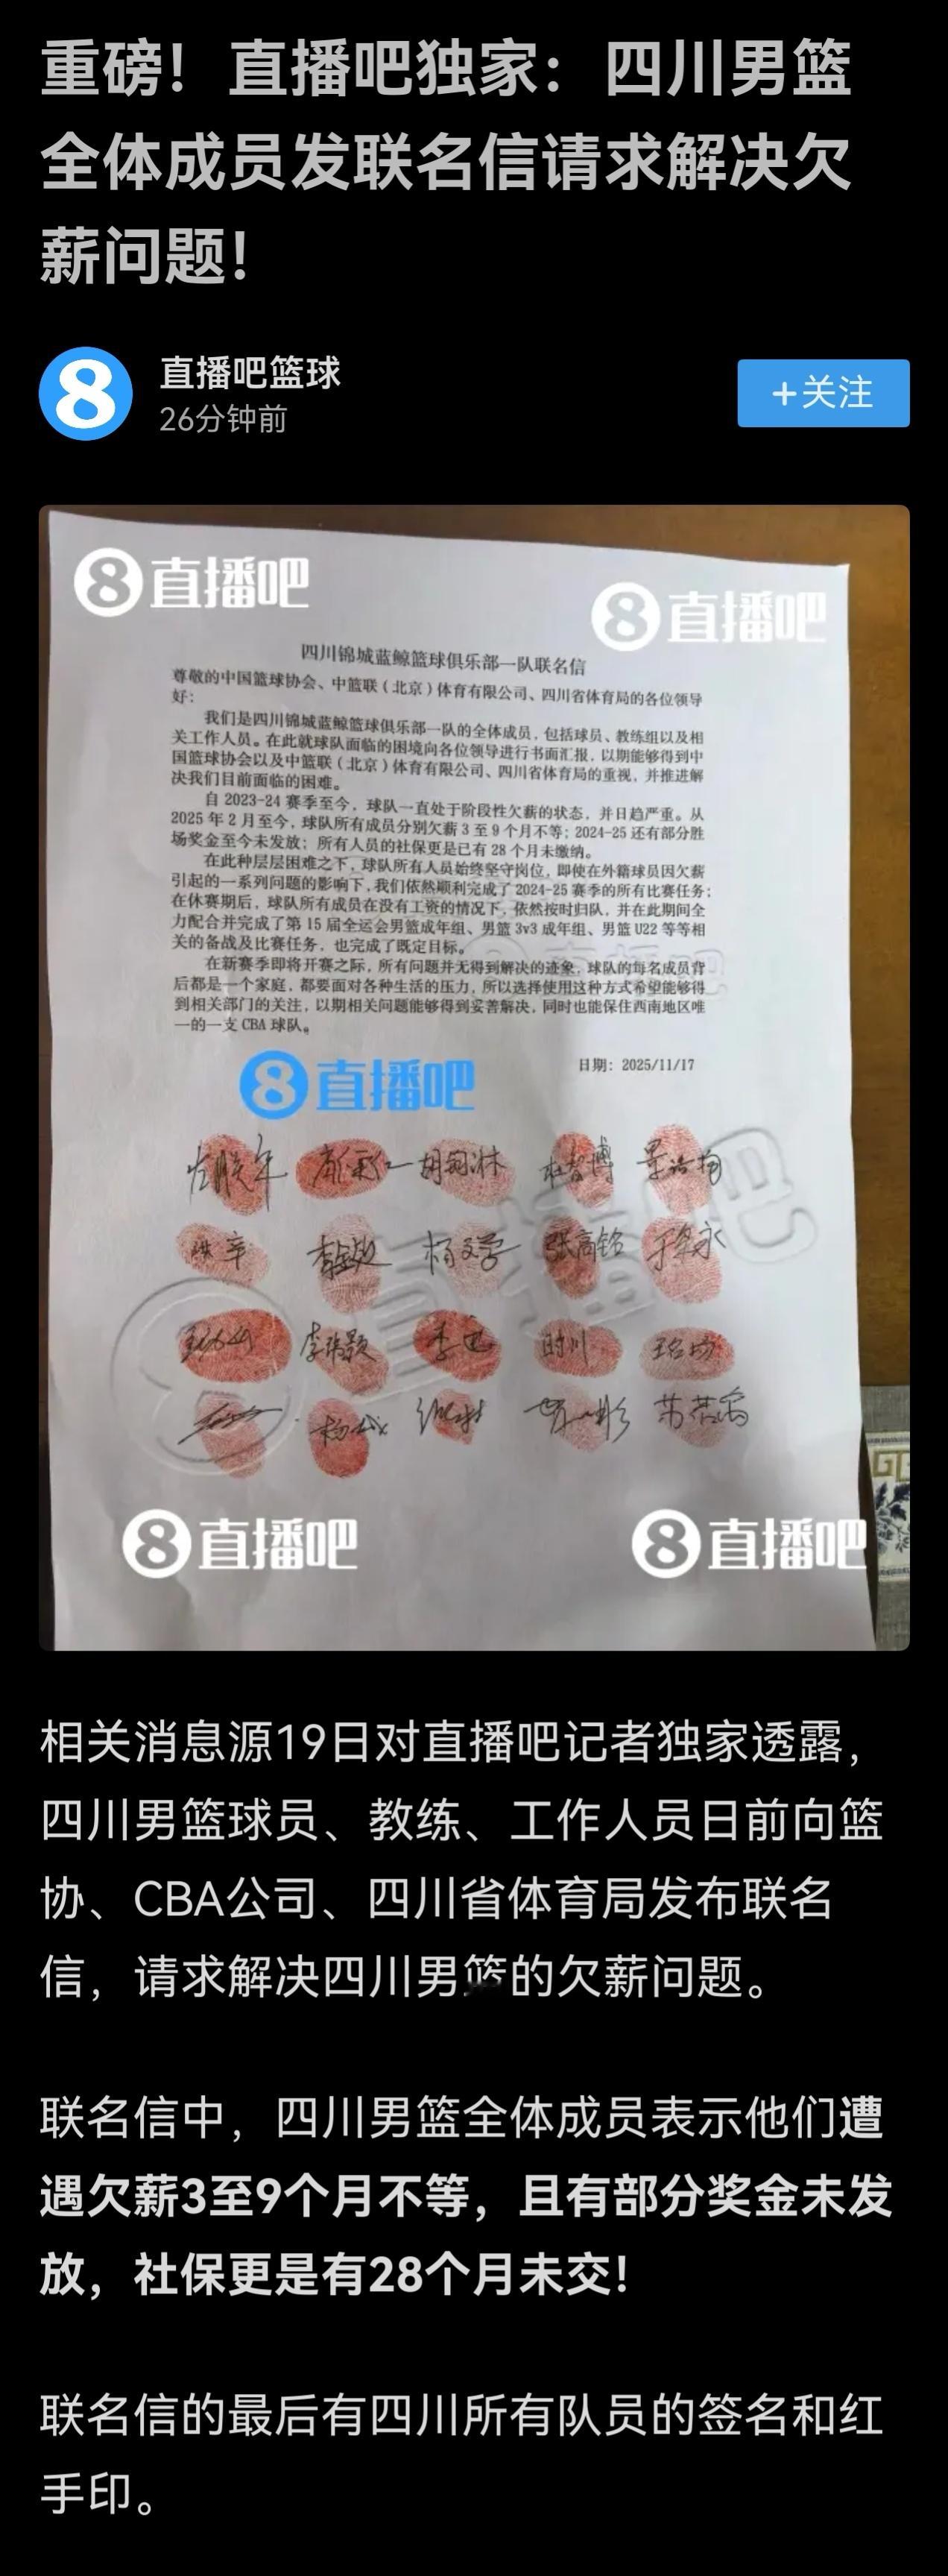 重磅！直播吧独家：四川男篮
全体成员发联名信请求解决欠
薪问题！
直播吧篮球
26分钟前
+关注
直播吧
直播吧
四川锦城蓝鲸篮球俱乐部一队联名信
尊敬的中国篮球协会、中篮联（北京）体育有限公司、四川省体育局的各位领导
好：
我们是四川锦城蓝鲸篮球俱乐部一队的全体成员，包括球员、教练组以及相
关工作人员。在此就球队面临的困境向各位领导进行书面汇报，以期能够得到中
国篮球协会以及中篮联（北京）体育有限公司、四川省体育局的重视，并推进解
决我们目前面临的困难。
自 2023-24 赛季至今，球队一直处于阶段性欠薪的状态，并日趋严重。从
2025 年 2 月至今，球队所有成员分别欠薪 3 至 9 个月不等；2024-25 还有部分胜
场奖金至今未发放；所有人员的社保更是已有 28 个月未缴纳。
在此种层层困难之下，球队所有人员始终坚守岗位，即使在外籍球员因欠薪
引起的一系列问题的影响下，我们依然顺利完成了 2024-25 赛季的所有比赛任务；
在休赛期后，球队所有成员在没有工资的情况下，依然按时归队，并在此期间全
力配合并完成了第 15 届全运会男篮成年组、男篮 3v3 成年组、男篮 U22 等等相
关的备战及比赛任务，也完成了既定目标。
在新赛季即将开赛之际，所有问题并无得到解决的迹象，球队的每名成员背
后都是一个家庭，都要面对各种生活的压力，所以选择使用这种方式希望能够得
到相关部门的关注，以期相关问题能够得到妥善解决，同时也能保住西南地区唯
一的一支 CBA 球队。
日期：2025/11/17
直播吧
胡翔淋
杜智博 景浩翔
杨文学 张高铭
李瑞颢 李迅 时川
杨斌
直播吧
直播吧
直播吧
相关消息源19日对直播吧记者独家透露，
四川男篮球员、教练、工作人员日前向篮
协、CBA公司、四川省体育局发布联名
信，请求解决四川男篮的欠薪问题。
联名信中，四川男篮全体成员表示他们遭
遇欠薪3至9个月不等，且有部分奖金未发
放，社保更是有28个月未交！
联名信的最后有四川所有队员的签名和红
手印。